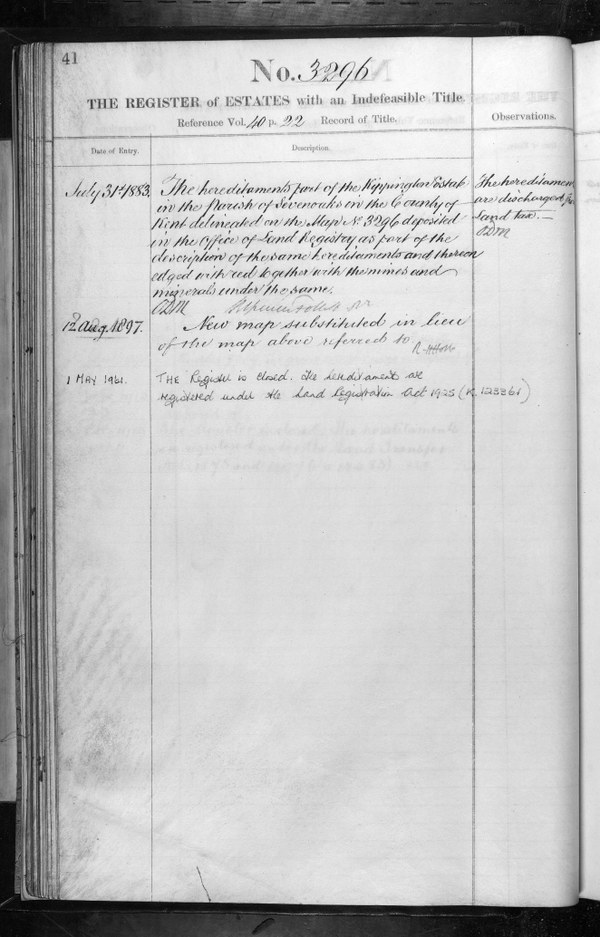 41
No. 3296
THE REGISTER of ESTATES with an Indefeasible Title.
Reference Vol. 40 p. 22 Record of Title.
Observations.
Date of Entry.
Description.
July 31st 1883.
The hereditaments part of the Kippington Estate
in the Parish of Sevenoaks in the County of
Kent delineated on the Map No. 3296 deposited
in the Office of Land Registry as part of the
description of the same hereditaments and thereon
edged with red together with the mines and
minerals under the same.
The hereditaments
are discharged from
Land tax. —
12 Aug. 1897.
New map substituted in lieu
of the map above referred to
1 MAY 1961.
THE Register is closed. The hereditaments are
registered under the Land Registration Act 1925 (K. 123361)